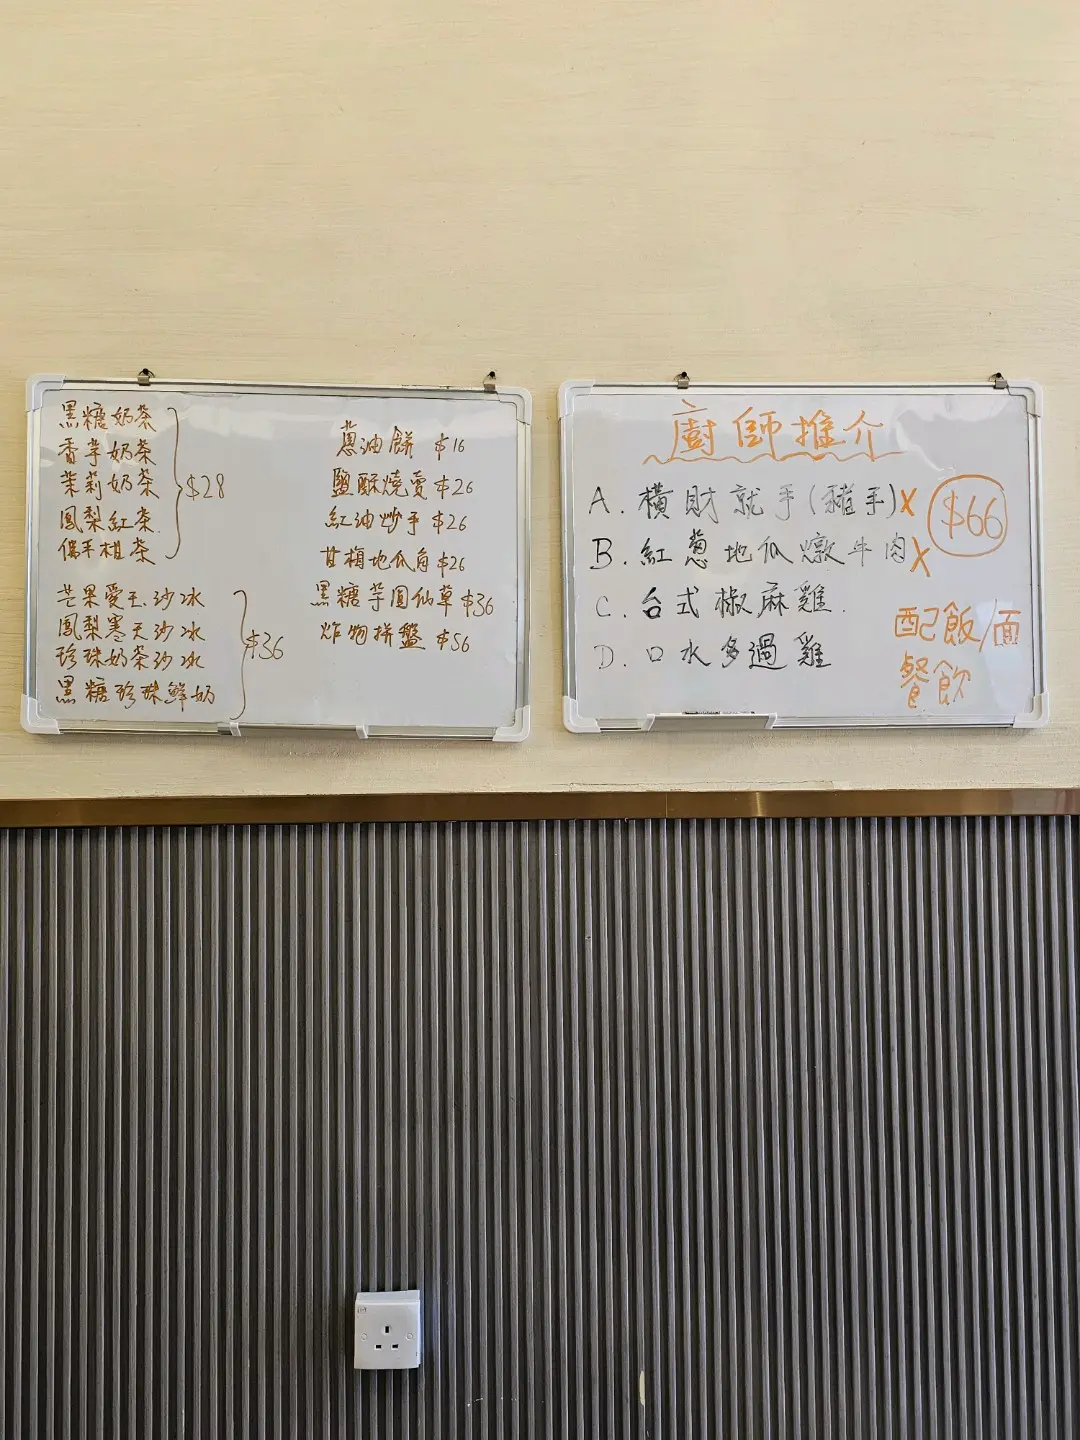 黑糖奶茶
香芋奶茶
茉莉奶茶
鳳梨紅茶
茶
$28
芒果愛玉沙冰
鳳梨寒天沙冰
珍珠奶茶沙冰
黑糖珍珠鮮奶
$36
蔥油餅 $16
鹽酥燒賣 $26
紅油炒手 $26
甘梅地瓜角 $26
黑糖芋圓仙草 $36
炸物拼盤 $56
廚師推介
A. 橫財就手(豬手) X
B. 紅蔥地瓜燉牛肉 X
C. 台式椒麻雞.
D. 口水多過雞
$66
配飯/面
餐飲